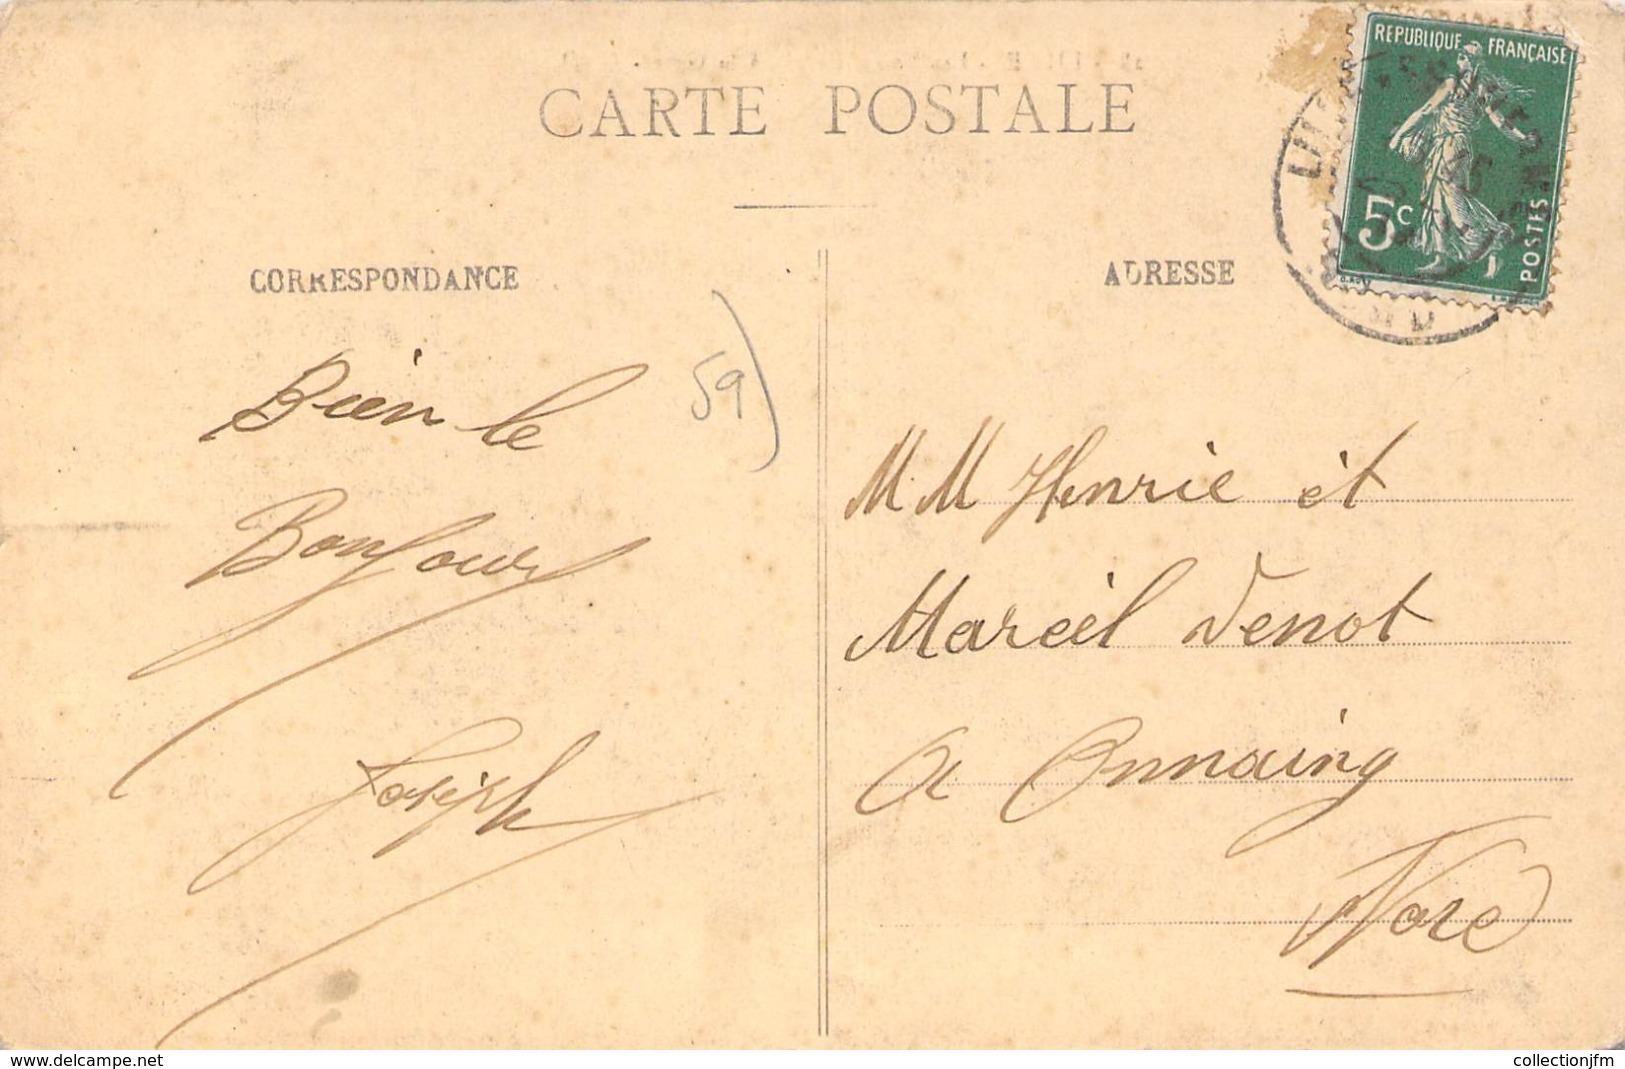 CARTE POSTALE
REPUBLIQUE FRANÇAISE
5c
POSTES
CORRESPONDANCE
ADRESSE
59)
Bien le
Bonjour
Joseph
M. M Henrie et
Marcel Denot
a Onnaing
Nord
www.delcampe.net
collectionjfm